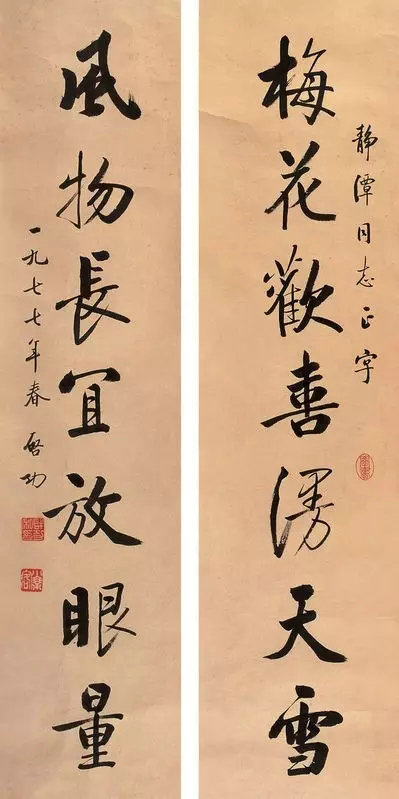 静潭同志正字
梅花歡喜漫天雪
風物長宜放眼量
一九七七年春 启功